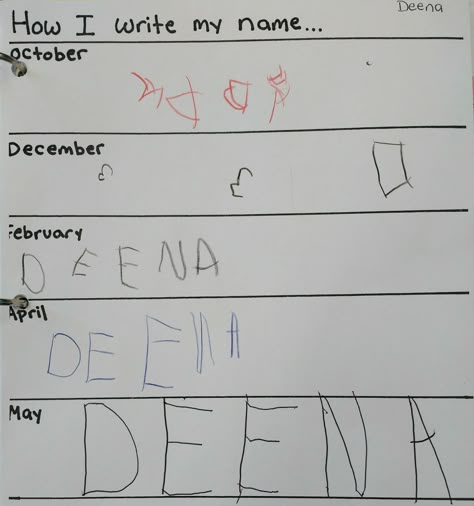 Deena
How I write my name...
October
December
February
D E E N A
April
DEENA
May
DEENA